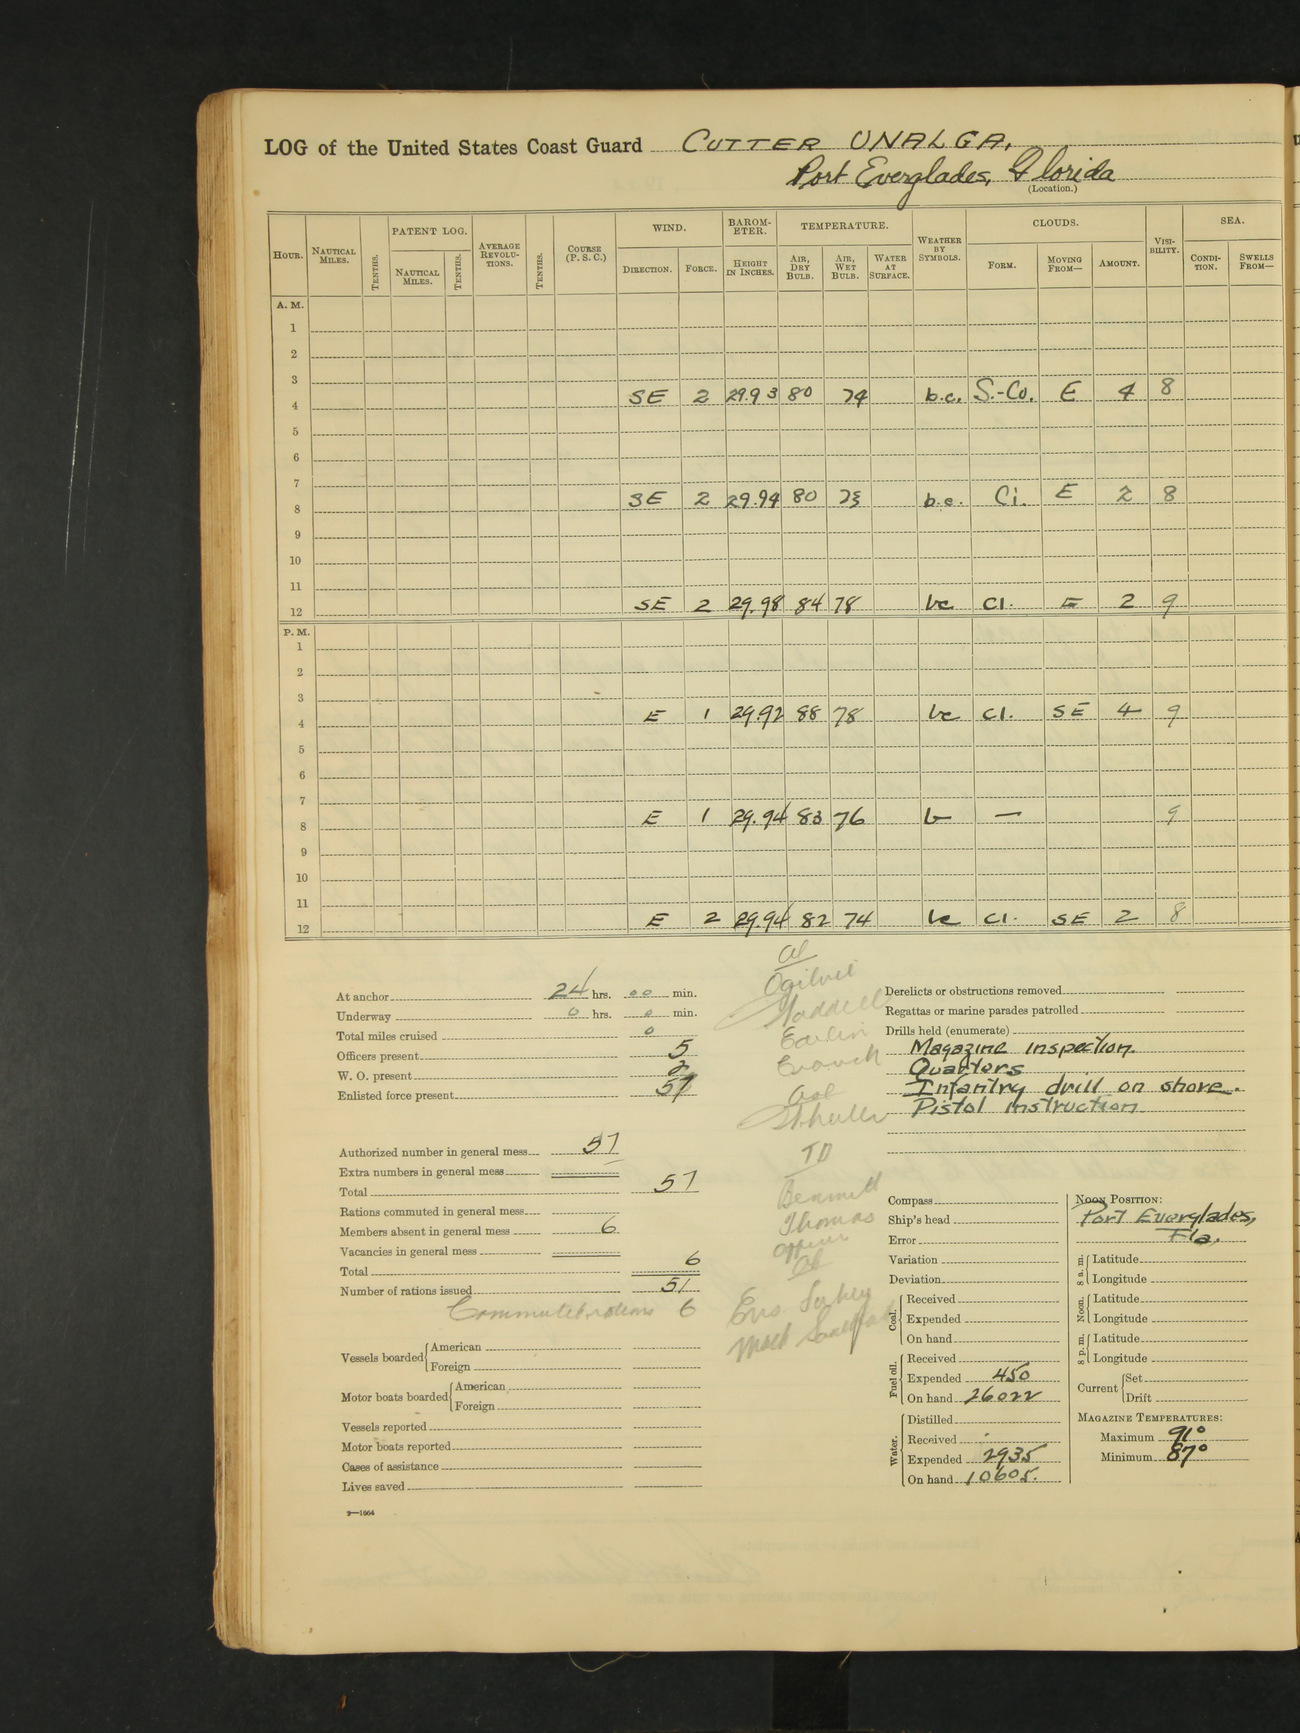 LOG of the United States Coast Guard CUTTER UNALGA,
Port Everglades, Florida
(Location.)
HOUR. NAUTICAL MILES. TENTHS. PATENT LOG. NAUTICAL MILES. TENTHS. AVERAGE REVOLUTIONS. TENTHS. COURSE (P. S. C.) WIND. DIRECTION. FORCE. BAROMETER. HEIGHT IN INCHES. TEMPERATURE. AIR, DRY BULB. AIR, WET BULB. WATER AT SURFACE. WEATHER BY SYMBOLS. CLOUDS. FORM. MOVING FROM— AMOUNT. VISIBILITY. SEA. CONDITION. SWELLS FROM—
A. M.
1
2
3
4 SE 2 29.93 80 74 b.c. S.-Co. E 4 8
5
6
7
8 SE 2 29.94 80 73 b.c. Ci. E 2 8
9
10
11
12 SE 2 29.98 84 78 bc CI. E 2 9
P. M.
1
2
3
4 E 1 29.92 88 78 bc CI. SE 4 9
5
6
7
8 E 1 29.94 83 76 b — 9
9
10
11
12 E 2 29.94 82 74 bc CI. SE 2 8
At anchor 24 hrs. 00 min.
Underway 0 hrs. 0 min.
Total miles cruised 0
Officers present 5
W. O. present 2
Enlisted force present 57
Authorized number in general mess 57
Extra numbers in general mess
Total 57
Rations commuted in general mess
Members absent in general mess 6
Vacancies in general mess
Total 6
Number of rations issued 51
Commuted rations 6
Vessels boarded American
Foreign
Motor boats boarded American
Foreign
Vessels reported
Motor boats reported
Cases of assistance
Lives saved
9—1664
Ogilvie
Waddell
TD
Bennett
Thomas
Derelicts or obstructions removed
Regattas or marine parades patrolled
Drills held (enumerate)
Magazine inspection.
Quarters
Infantry drill on shore.
Pistol instruction
Compass
Ship's head
Error
Variation
Deviation
Coal. Received
Expended
On hand
Fuel oil. Received
Expended 450
On hand 26022
Water. Distilled
Received -
Expended 2935
On hand 10605.
NOON POSITION:
Port Everglades,
Fla.
8 a. m. Latitude
Longitude
Noon. Latitude
Longitude
8 p. m. Latitude
Longitude
Current Set
Drift
MAGAZINE TEMPERATURES:
Maximum 91°
Minimum 87°